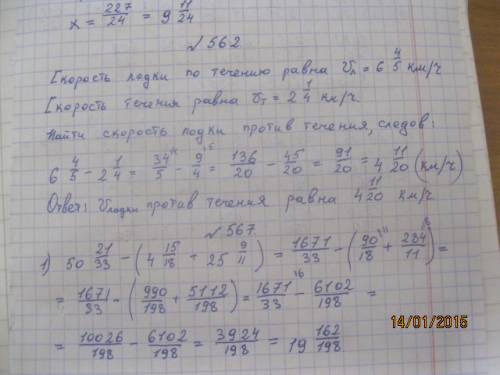 x = 227/24 = 9 11/24
√ 562
Скорость лодки по течению равна Vл = 6 4/5 км/ч
Скорость течения равна Vт = 2 1/4 км/ч.
Найти скорость лодки против течения, следов:
6 4/5 - 2 1/4 = 34/5 - 9/4 = 136/20 - 45/20 = 91/20 = 4 11/20 (км/ч)
Ответ: Vлодки против течения равна 4 11/20 км/ч.
√ 567
1) 50 21/33 - (4 15/18 + 25 9/11) = 1671/33 - (90/18 + 284/11) =
= 1671/33 - (990/198 + 5112/198) = 1671/33 - 6102/198 =
= 10026/198 - 6102/198 = 3924/198 = 19 162/198
14/01/2015